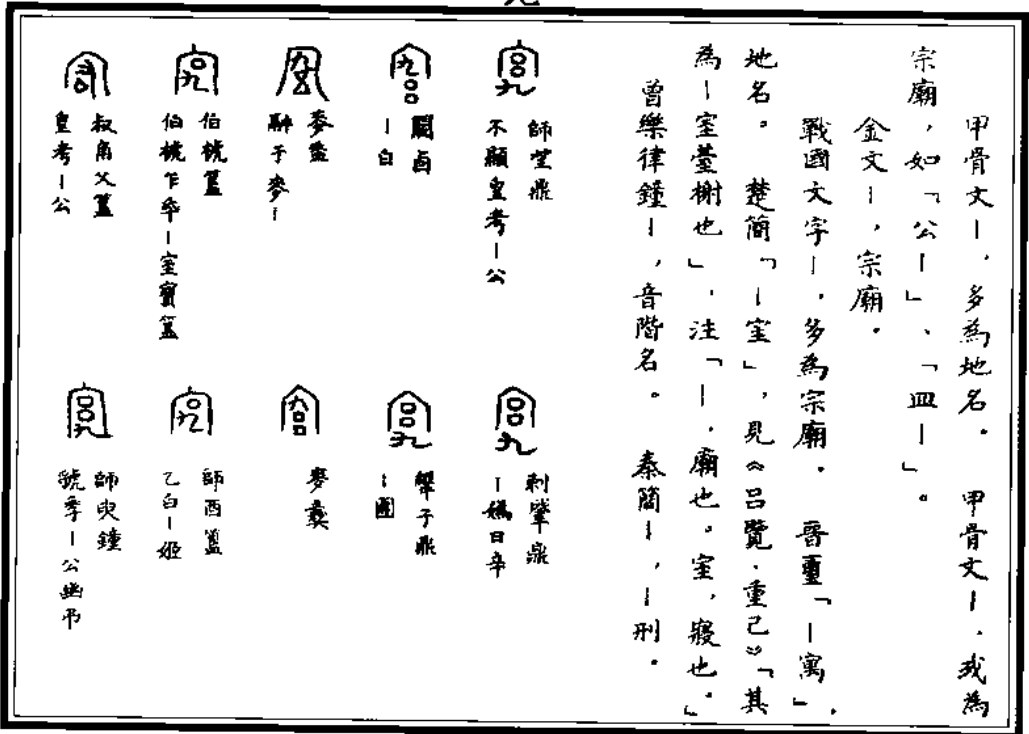 甲骨文－，多為地名。　甲骨文－，或為
宗廟，如「公－」、「皿－」。
金文－，宗廟。
戰國文字－，多為宗廟。　晉璽「－寓」，
地名。　楚簡「－室」，見《呂覽·重己》「其
為－室臺榭也」，注「－，廟也。室，寢也。」
曾樂律鐘－，音階名。　秦簡－，－刑。
師𡉚鼎
不顯皇考－公
剌肇鼎
－嬀日辛
卣
－白
子鼎
－
麥盉
于麥－
麥彝
伯㭒簋
伯㭒乍氒－室寶簋
師酉簋
乙白－姬
叔角父簋
皇考－公
師㝨鐘
虢季－公幽弔